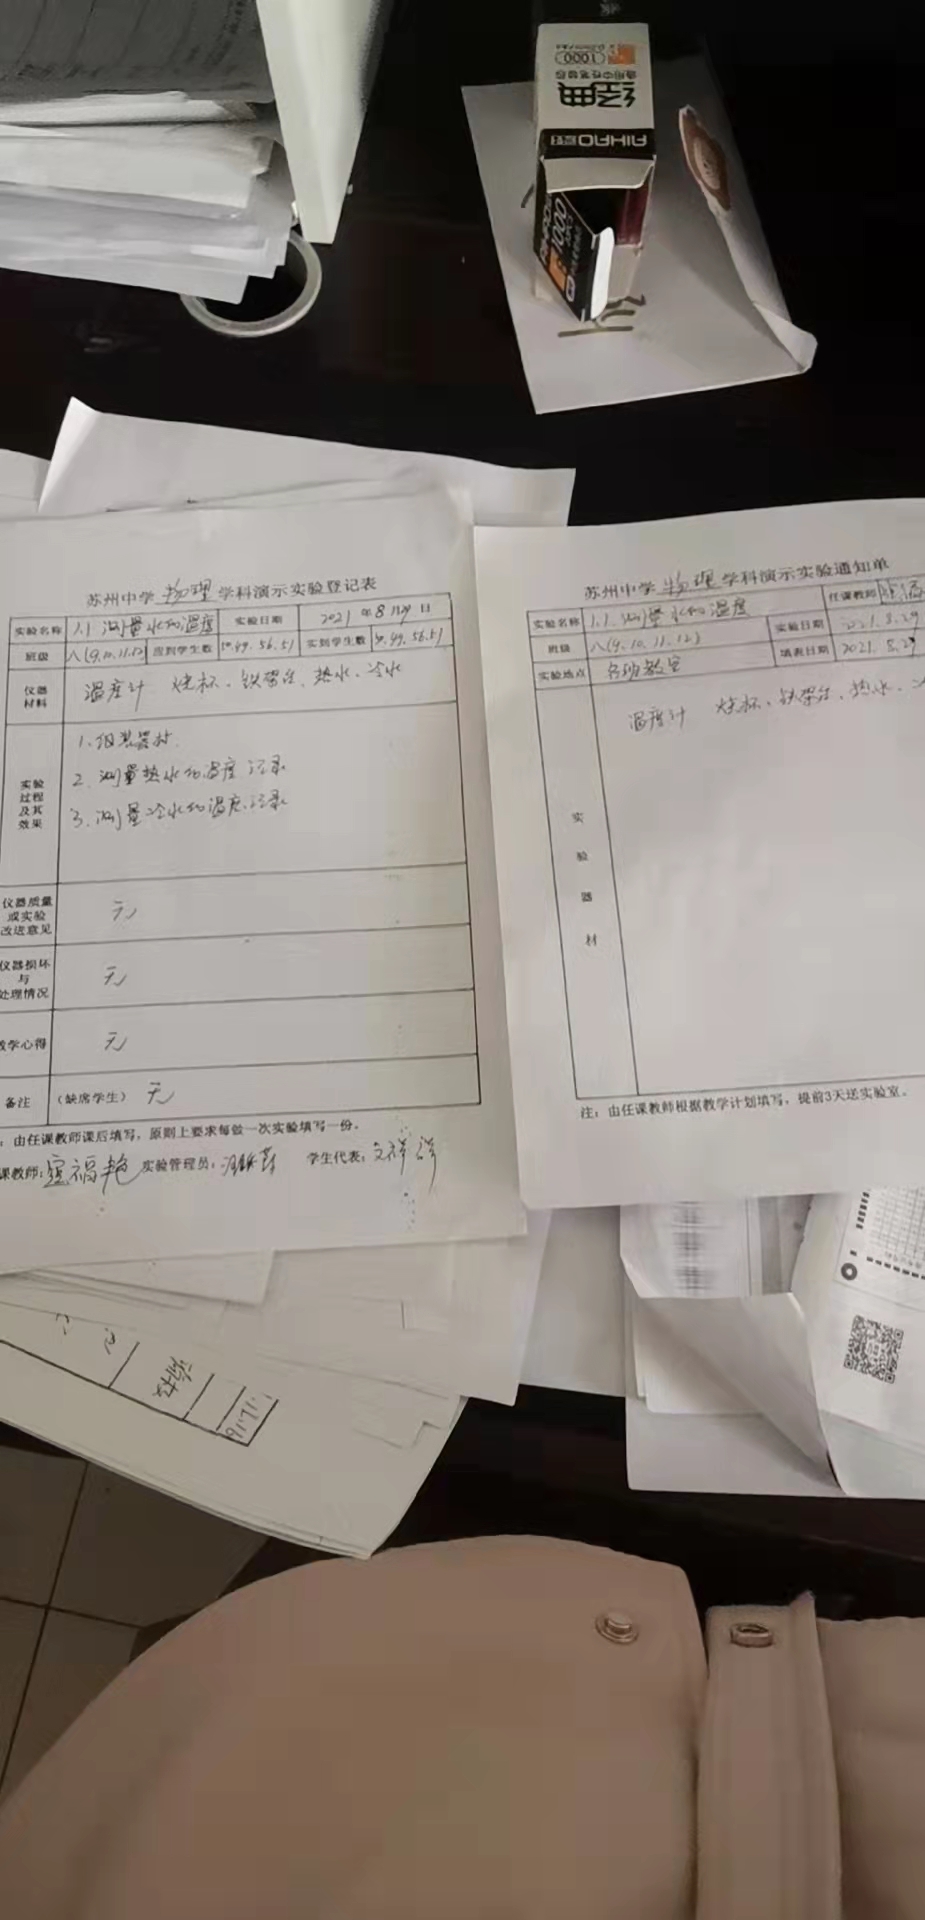 经典
1000
适用中性笔替芯
AIHAO爱好
1000
苏州中学 物理 学科演示实验登记表
实验名称 1.1 测量水的温度 实验日期 2021 年 8 月 29 日
班级 八(9.10.11.12) 应到学生数 49.56.51 实到学生数 49.56.51
仪器材料 温度计 烧杯、铁架台、热水、冷水
实验过程及其效果
1.组装器材
2.测量热水的温度 记录
3.测量冷水的温度.记录
仪器质量或实验改进意见 无
仪器损坏与处理情况 无
教学心得 无
备注 (缺席学生) 无
:由任课教师课后填写,原则上要求每做一次实验填写一份。
课教师: 福艳 实验管理员: 学生代表:文祥
苏州中学 物理 学科演示实验通知单
任课教师
实验名称 1.1.测量水的温度 实验日期 2021.8.29
班级 八(9.10.11.12) 填表日期 2021.8.29
实验地点 各班教室
实验器材 温度计 烧杯、铁架台、热水、
注:由任课教师根据教学计划填写,提前3天送实验室。